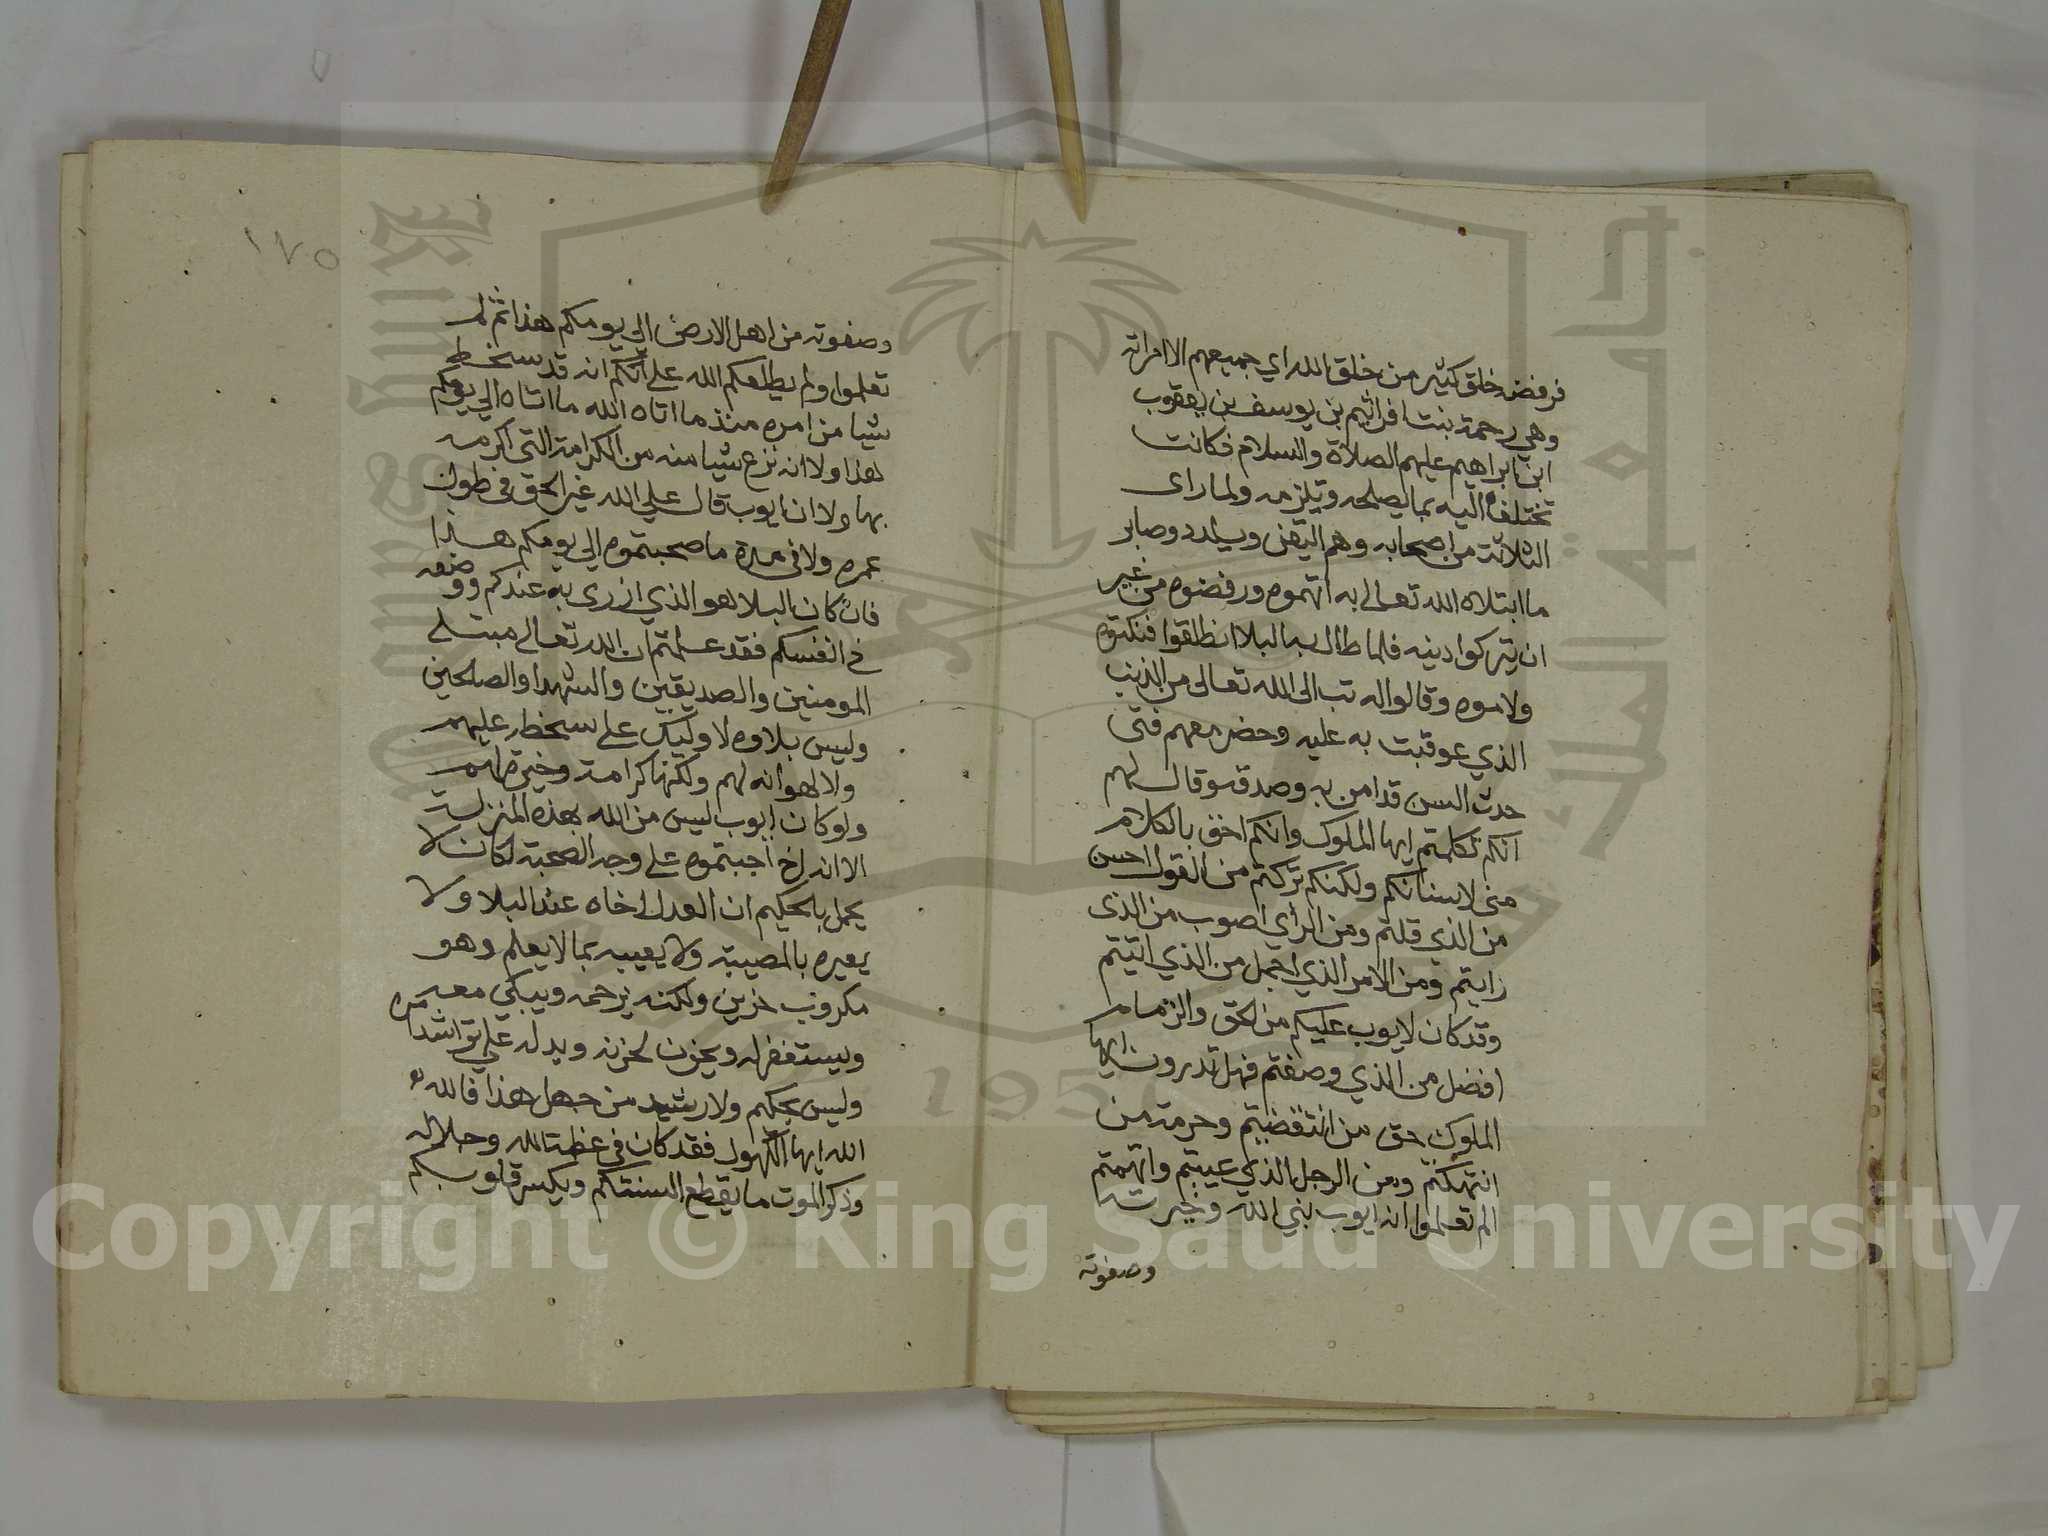 فرفضه خلق كثير من خلق الله اي جميعهم الا امراته
وهي رحمة بنت افراثيم بن يوسف بن يعقوب
ابن ابراهيم عليهم الصلاة والسلام فكانت
تختلف اليه بما يصلحه وتلزمه ولما راى
الثلاثة من اصحابه وهم اليفن ويلدد وصابر
ما ابتلاه الله تعالى به اتهموه ورفضوه من غير
ان يتركوا دينه فلما طال به البلا انطلقوا فنكتوه
ولاموه وقالوا له تب الى الله تعالى من الذنب
الذي عوقبت به عليه وحضر معهم فتى
حدث السن قد امن به وصدقه وقال لهم
انكم تكلمتم ايها الملوك وانكم احق بالكلام
منى لاسنانكم ولكنكم تركتم من القول احسن
من الذي قلتم ومن الراي اصوب من الذى
رايتم ومن الامر الذي اجمل من الذي اتيتم
وقد كان لايوب عليكم من الحق والذمام
افضل من الذي وصفتم فهل تدرون ايها
الملوك حق من انتقضيتم وحرمة من
انتهكتم ومن الرجل الذي عيبتم واتهمتم
الم تعلموا ان ايوب نبي الله وخيرته
وصفوته
١٧٥
وصفوته من اهل الارض الي يومكم هذا ثم لم
تعلموا ولم يطلعكم الله علي انكم انه قد سخط
شيا من امره منذ ما اتاه الله ما اتاه الي يومكم
هذا ولا انه نزع شيا منه من الكرامة التي اكرمه
بها ولا ان ايوب قال علي الله غير الحق في طول
عمره ولا في مدة ما صحبتموه الي يومكم هذا
فان كان البلا هو الذي ازرى به عندكم ووضعه
في انفسكم فقد علمتم ان الله تعالى مبتلي
المومنين والصديقين والشهدا والصلحين
وليس بلاوه لاوليك علي سخطه عليهم
ولا لهوانه لهم ولكنها كرامة وخيرة لهم
ولو كان ايوب ليس من الله بهذه المنزلة
الا انه اخ اجبتموه على وجه الصحبة لكان لا
يجمل بالحكيم ان العدل اخاه عند البلا ولا
يعيره بالمصيبة ولا يعيبه بما لا يعلم وهو
مكروب حزين ولكنه يرحمه ويبكي معه
ويستغفر له ويحزن لحزنه ويدله علي تراشد امره
وليس بحكيم ولا رشيد من جهل هذا فالله
الله ايها الكهول فقد كان في عظمة الله وجلاله
وذكر الموت ما يقطع السنتكم ويكسر قلوبكم
جامعة الملك سعود
King Saud University
1957
Copyright © King Saud University